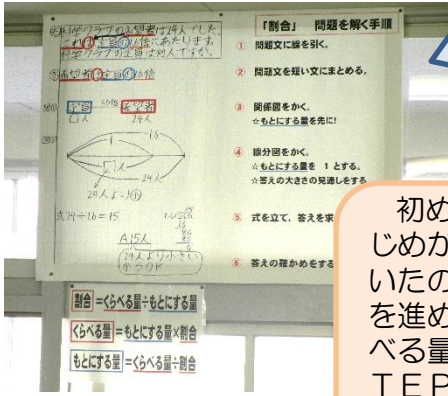 科学クラブの希望者は24人でした。
これは定員の1.6倍にあたります。
科学クラブの定員は何人ですか。
希望者は定員の1.6倍
定員 1.6倍 希望者
□人 24人
1.6
1
□人
24人
24人より小
式24÷1.6=15
A.15人
24人より小さい
からOK
「割合」 問題を解く手順
① 問題文に線を引く。
② 問題文を短い文にまとめる。
③ 関係図をかく。
☆もとにする量を先に!
④ 線分図をかく。
☆もとにする量を 1 とする。
☆答えの大きさの見通しをする
⑤ 式を立て、答えを求
⑥ 答えの確かめをする
割合=くらべる量÷もとにする量
くらべる量=もとにする量×割合
もとにする量=くらべる量÷割合
初め
じめか
いたの
を進め
べる量
TEP